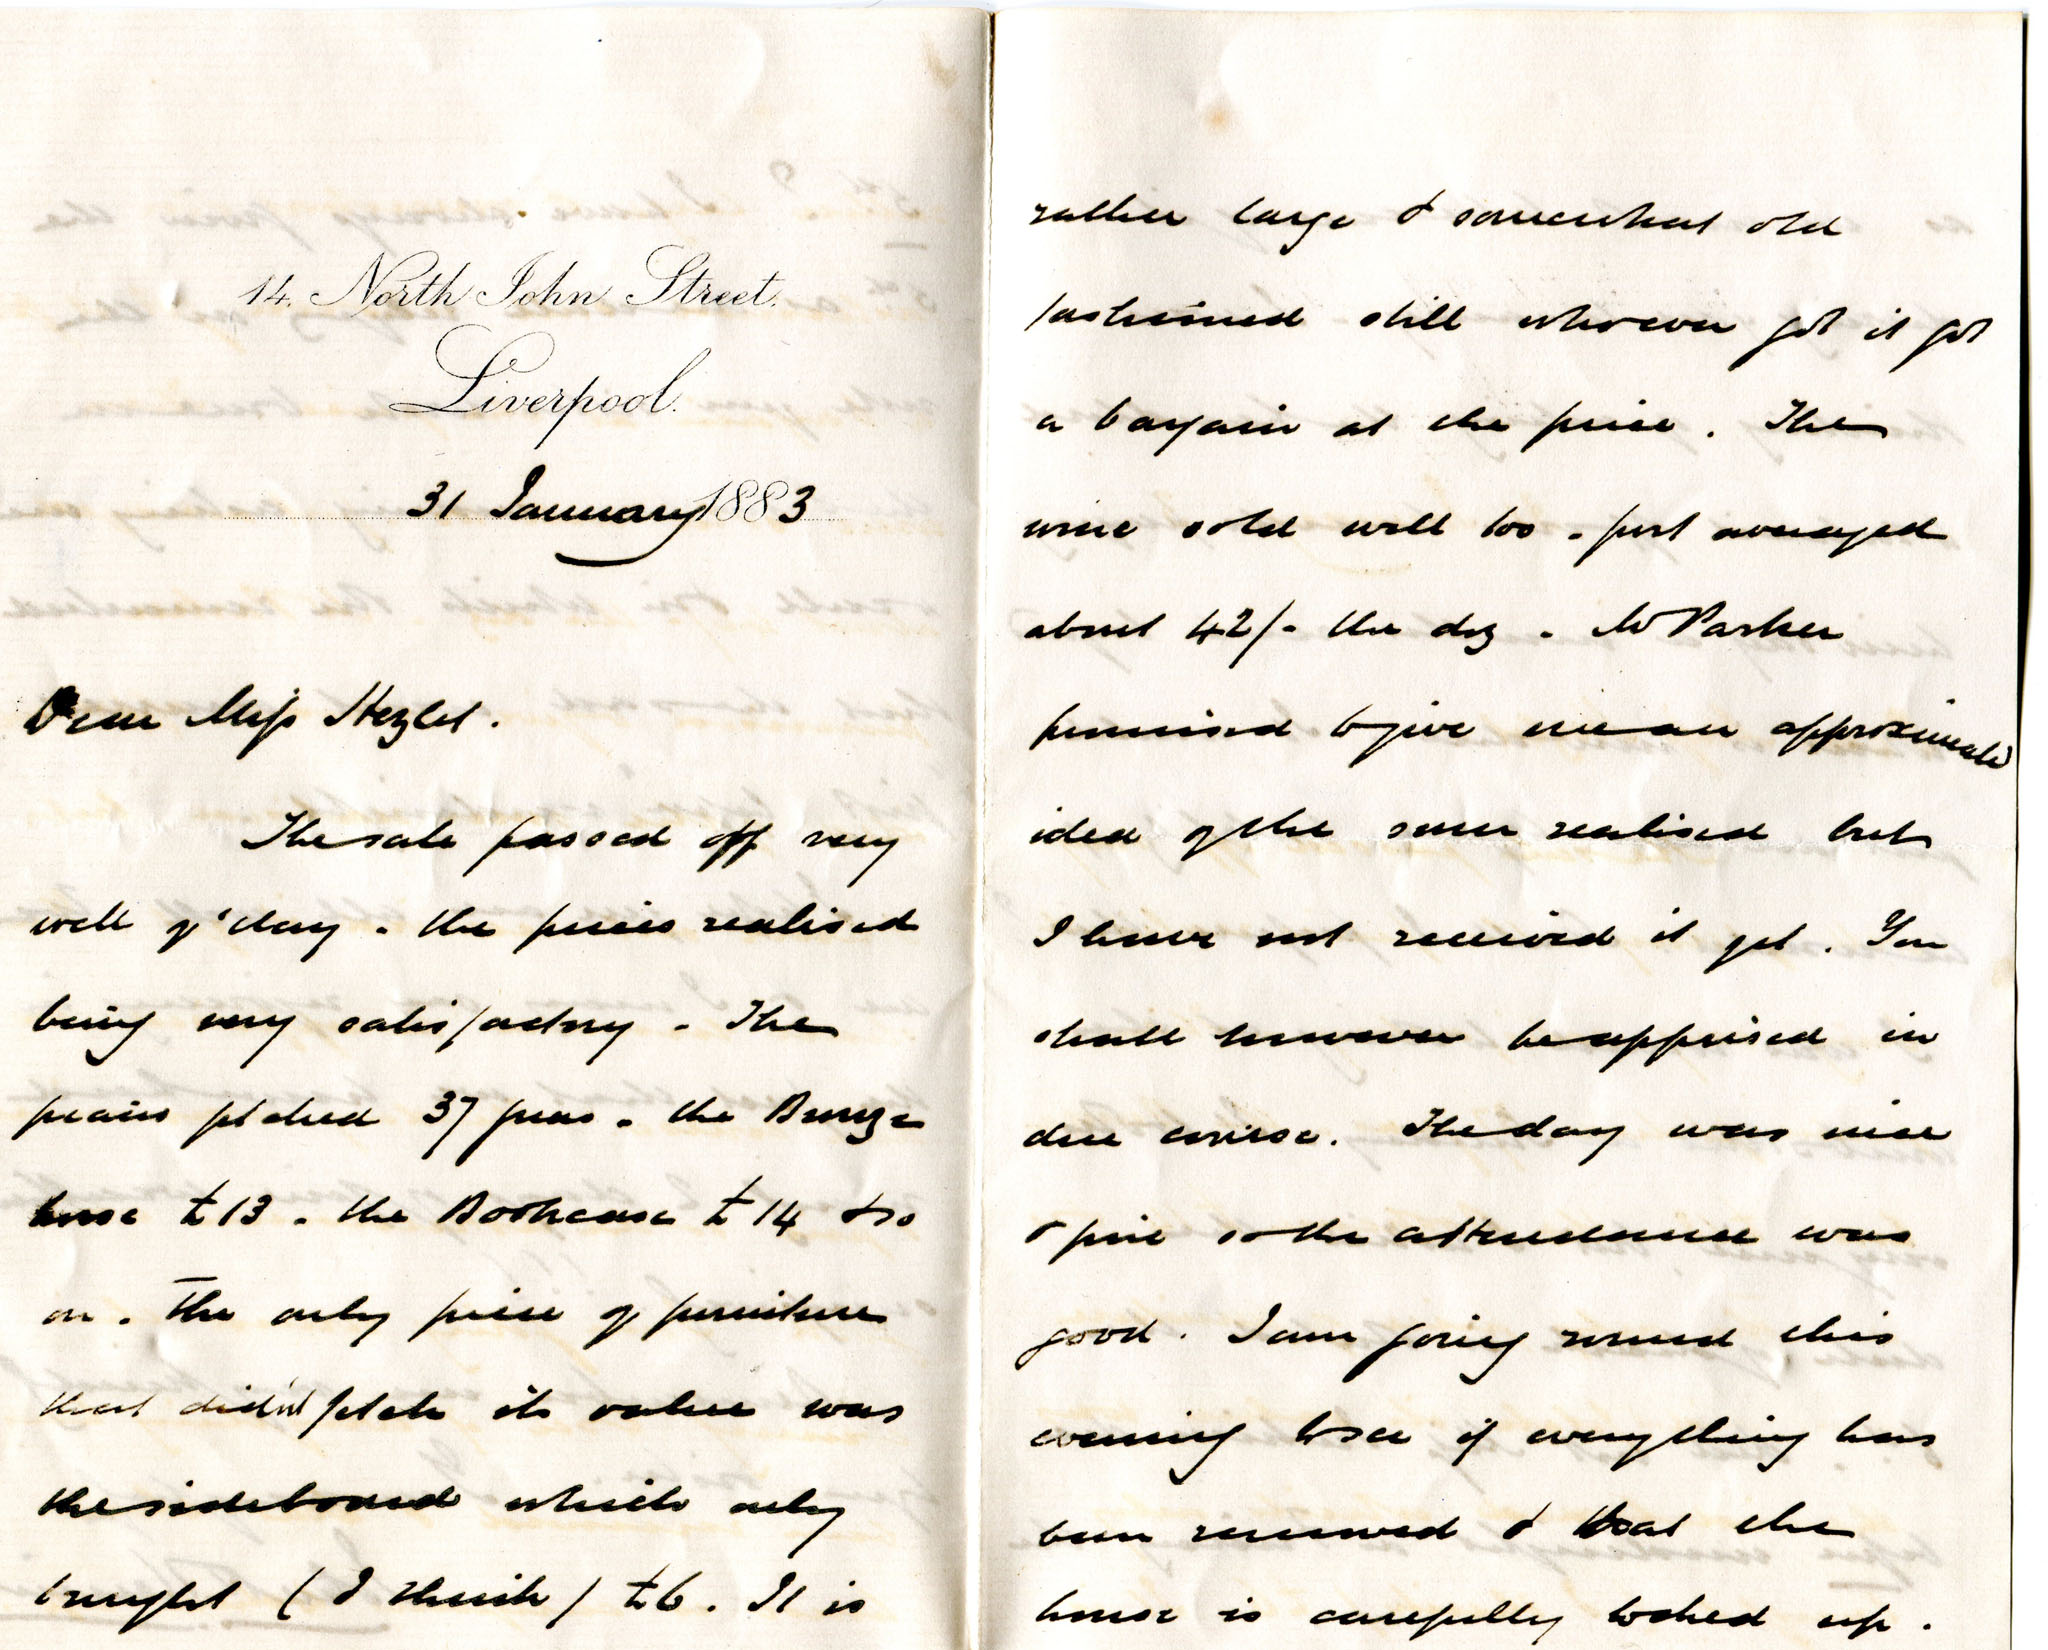 14. North John Street.
Liverpool.
31 January 1883
Dear Miss Hezlet.
The sale passed off very
well y'day. the prices realised
being very satisfactory. The
piano fetched 37 gns. the Bronze
horse £13. the Bookcase £14 & so
on. The only piece of furniture
that didn't fetch its value was
the sideboard which only
brought (I think) £6. It is
rather large & somewhat old
fashioned still whoever got it got
a bargain at the price. The
wine sold well too. port averaged
about 42/- the doz. Mr Parker
promised to give me an approximate
idea of the sum realised but
I have not received it yet. You
shall however be apprised in
due course. The day was nice
& fine so the attendance was
good. I am going round this
evening to see if everything has
been removed & that the
house is carefully locked up.